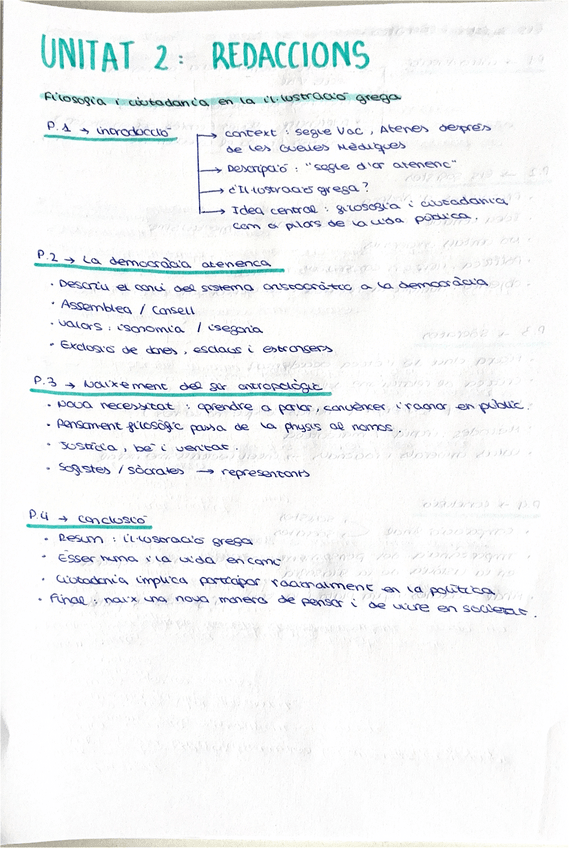 UNITAT 2: REDACCIONS
Filosofia i ciutadania en la il·lustració grega
P.1 → introducció
→ context: segle V aC, Atenes després
de les Guerres Mèdiques
→ Descripció: "segle d'or atenenc"
→ d'Il·lustració grega?
→ Idea central: filosofia i ciutadania
com a pilars de la vida pública.
P.2 → La democràcia atenenca
· Descriu el canvi del sistema aristocràtic a la democràcia
· Assemblea / Consell
· Valors: isonomia / isegoria
· Exclosió de dones, esclaus i estrangers
P.3 → Naixement del gir antropològic
· Nova necessitat: aprendre a parlar, convèncer i raonar en públic.
· Pensament filosògic passa de la physis al nomos.
· Justícia, bé i veritat.
· Sofistes / Sòcrates → representants
P.4 → conclusió
· Resum: il·lustració grega
· Ésser humà i la vida en comú
· Ciutadania implica participar racionalment en la política
· Final: naix una nova manera de pensar i de viure en societat.